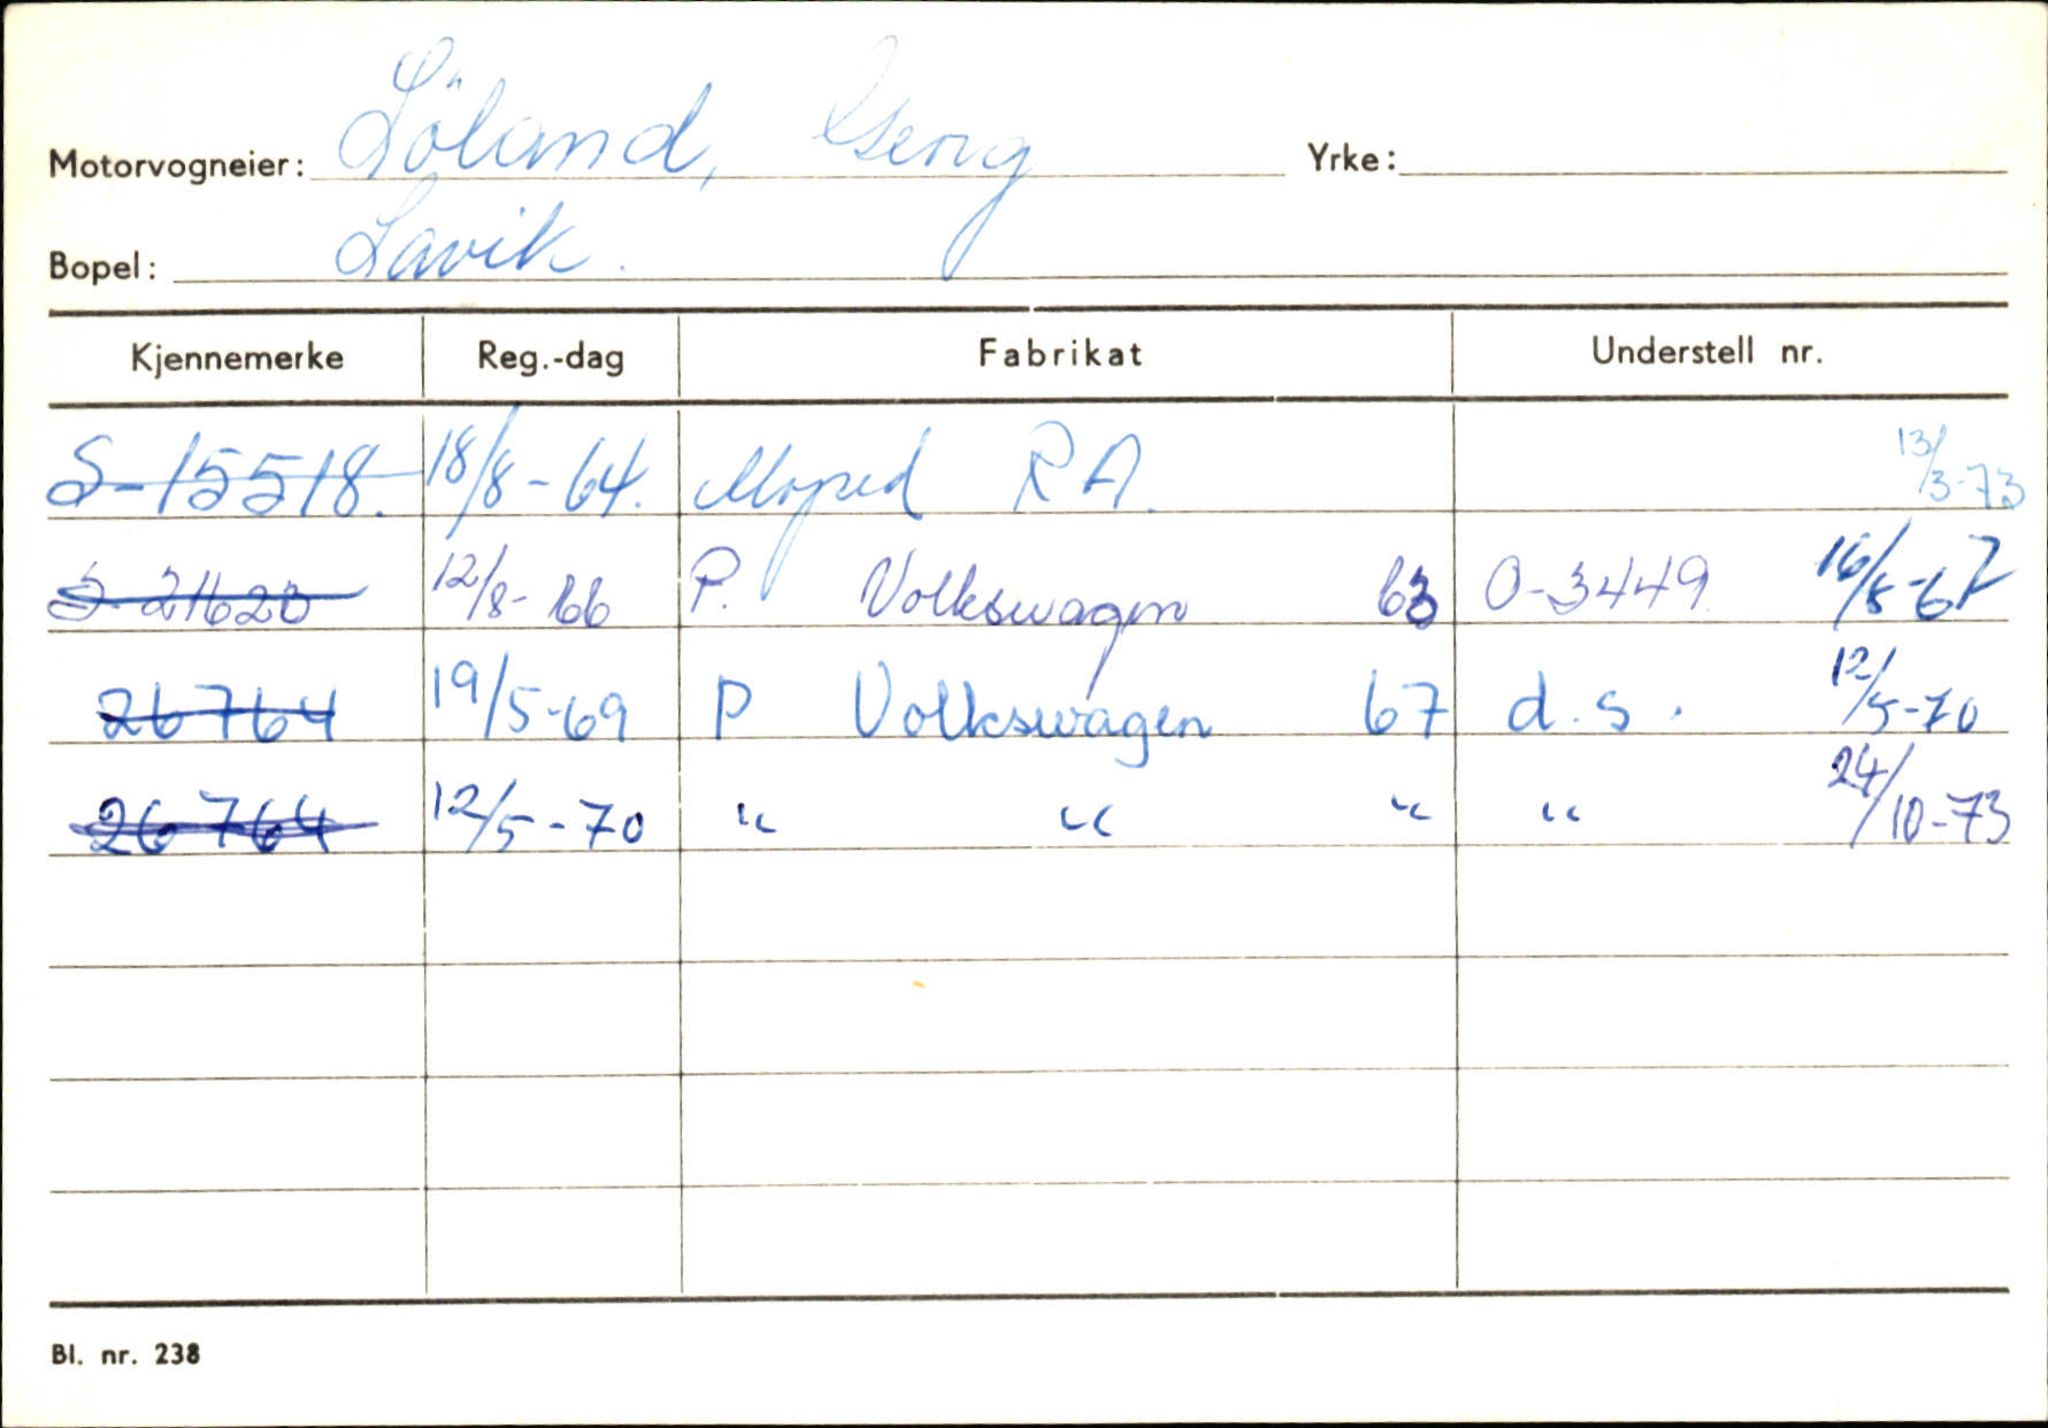 Motorvogneier: Löland, Georg Yrke:
Bopel: Lavik.
Kjennemerke Reg.-dag Fabrikat Understell nr.
S-15518. 18/8-64. Moped RA. 13/3-73
12/8-66 P. Volkswagen 63 0-3449 16/8-67
26764 19/5-69 P Volkswagen 67 d.s. 12/5-70
26764 12/5-70 " " " " 24/10-73
Bl. nr. 238